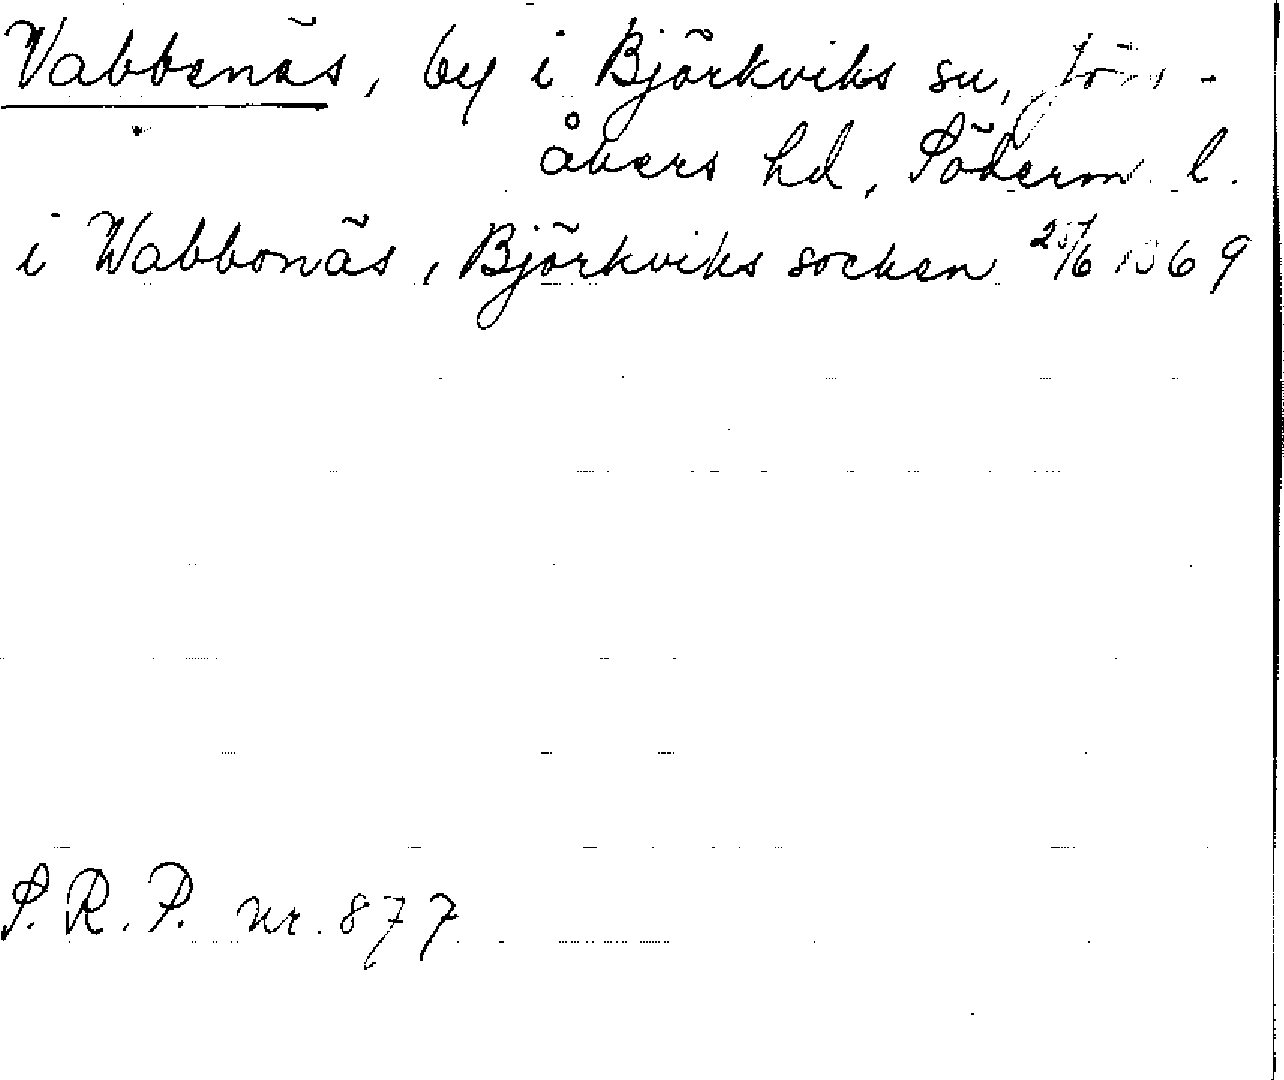 Vabbenäs, by i Björkviks sn, Jön-
åkers hd, Söderm. l.
i Wabbonäs, Björkviks socken 25/6 1369
S.R.P. nr. 877